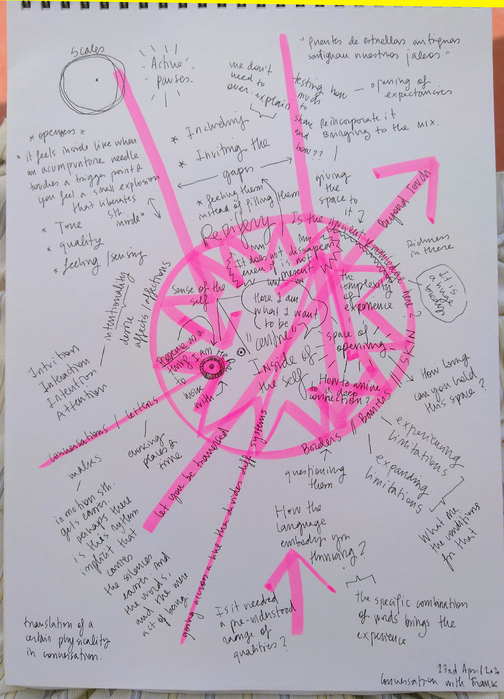 Scales
Active
Pauses
"puentes de estrellas antiguas
santiguan nuestros jaleos"
we don't
need to
over-explain
testing how
much
to
share
and
how??
opening of
expectancies
reincorporate it
bringing to the mix.
* openness *
* it feels inside like when
an acupuncture needle
touches a trigger point &
you feel a small explosion
that liberates
sth.
inside *
* Tone
* quality
* feeling/sensing
* Including
* Inviting the
gaps
* feeling them
instead of filling them
giving
the space
to it
Beyond touch
Periphery
Is the
knowledge here?
It does not disappear
even if is not
present
Richness
in there
It is
a huge
Sense of the
self
Here I am
what I want
to be
"centre"
the
complexity
of
experience
space of
opening
Inside of
the self
I am Here
to
work
with
How to
connection?
SKIN
Borders // Barriers ///
intentionality
desire
affects/affections
Intuition
Interaction
Intention
Attention
conversations / letters
evoking
places &
time
let you be traversed
going across a line that divides diff systems
makes
in motion sth.
gets carved.
perhaps there
is this rhythm
implicit that
carves
the silences
carves and
the words,
and the mere
act of being
questioning
them
How the
language
embody you
thinking?
Is it needed
a pre-understood
range of
qualities?
How long
can you hold
this space?
experiencing
limitations
expanding
limitations
What are
the conditions
for this
the specific combination
of words brings the
experience
translation of a
certain physicality
in conversation.
23rd April/20
Conversation with Frank